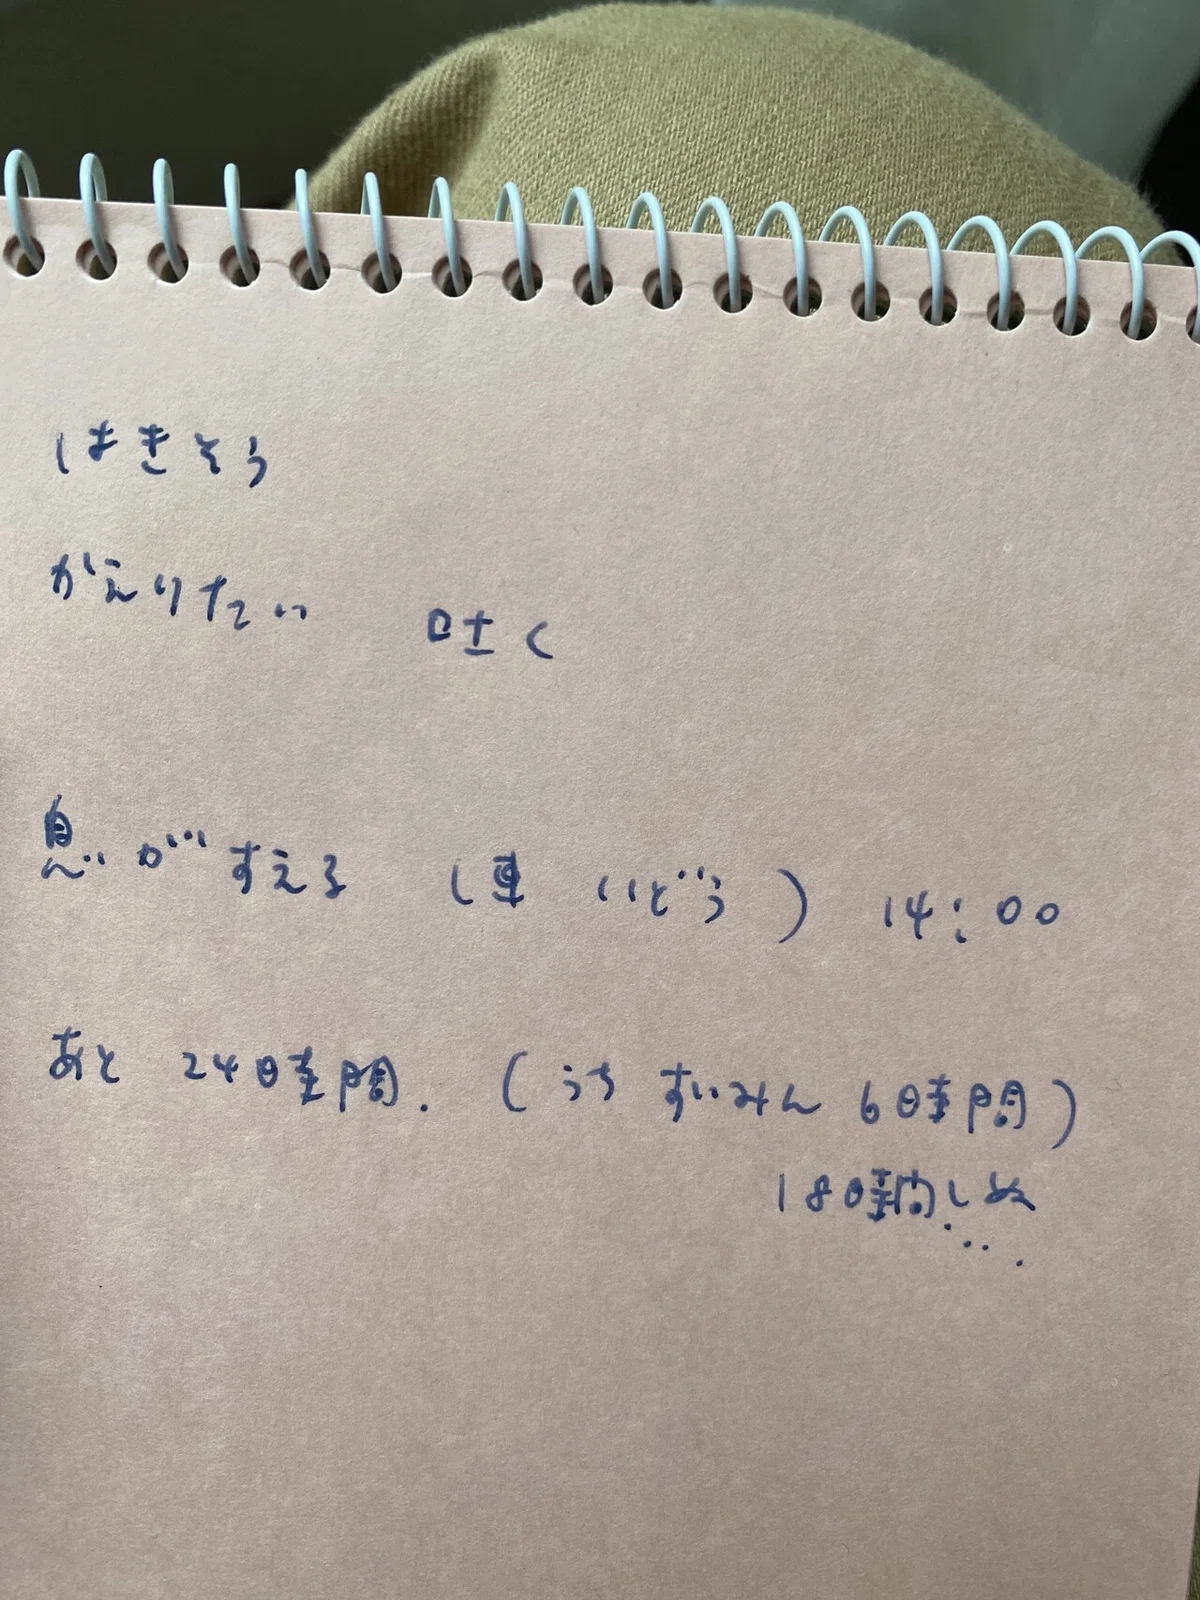 はきそう
がえりたい 吐く
息が すえる (車 いどう) 14:00
あと 24時間. (うち すいみん 6時間)
18時間しぬ....